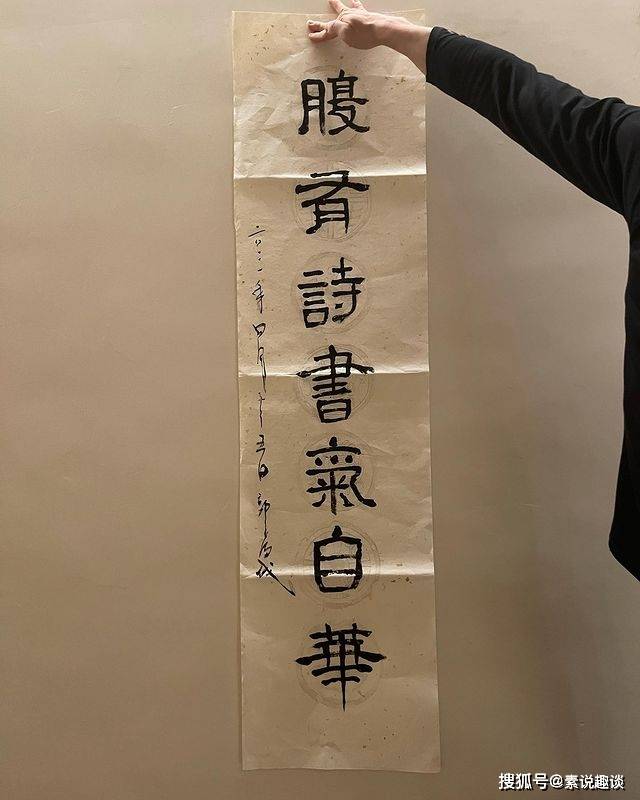 腹有詩書氣自華
二〇二一年四月十五日郭有城
搜狐号@素说趣谈